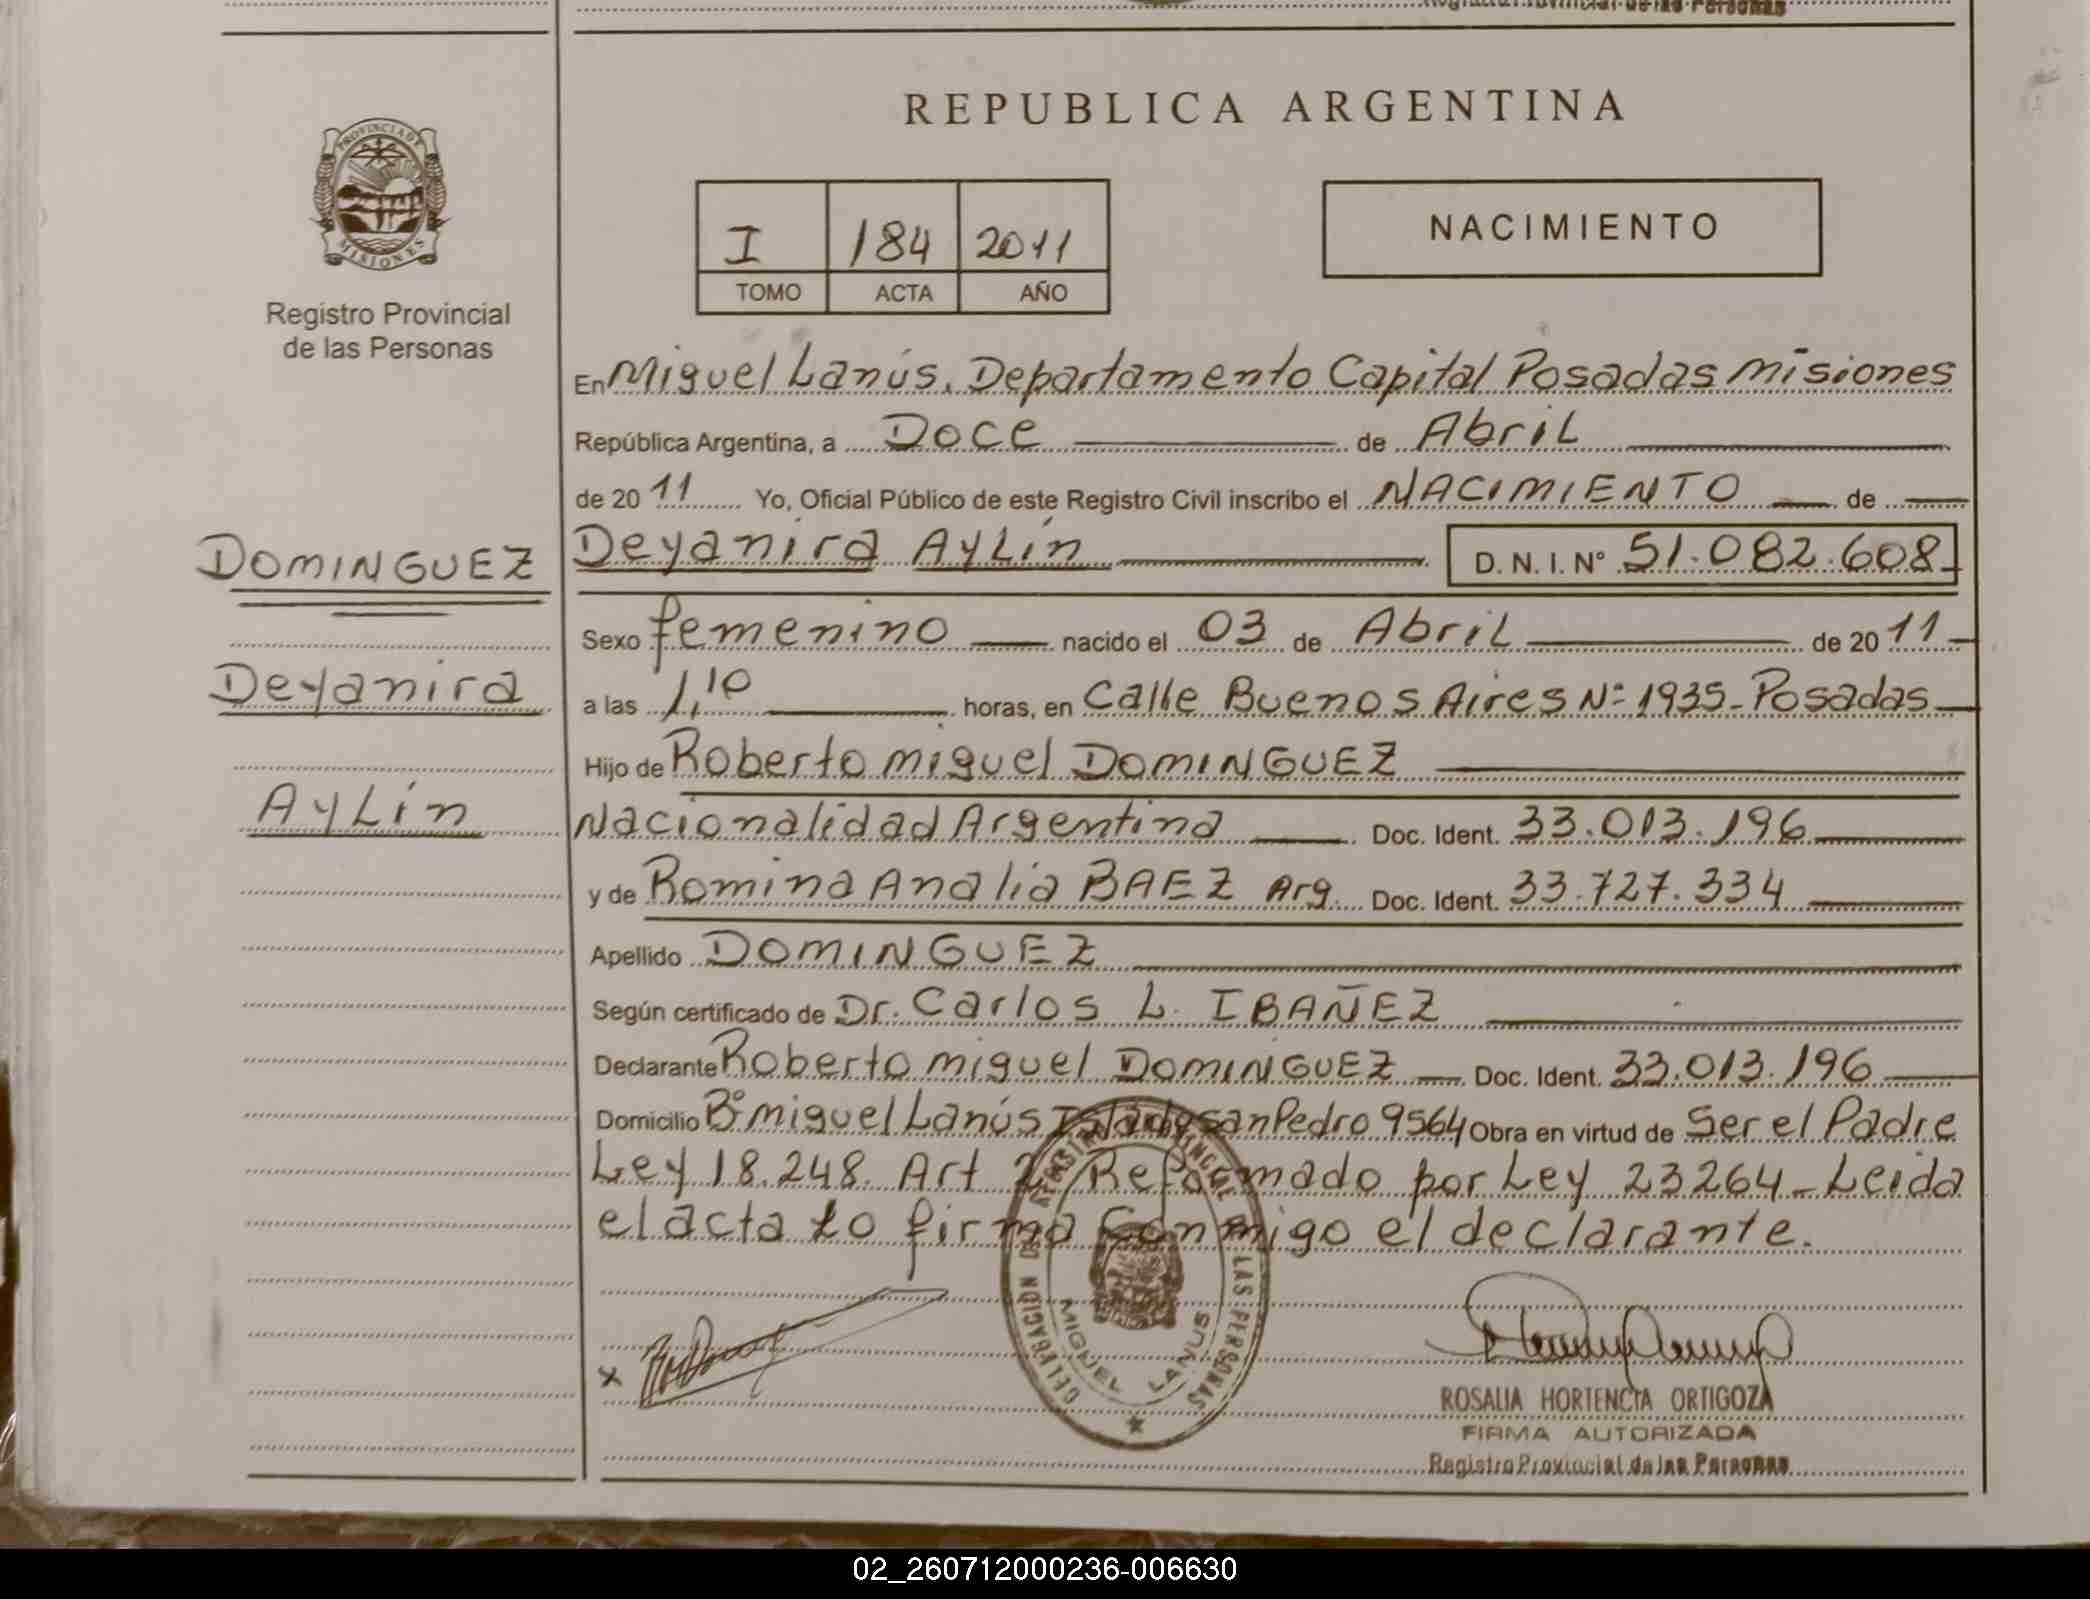 REPUBLICA ARGENTINA
PROVINCIA DE
MISIONES
Registro Provincial
de las Personas
I 184 2011
TOMO ACTA AÑO
NACIMIENTO
En Miguel Lanús. Departamento Capital Posadas Misiones
República Argentina, a Doce de Abril
de 2011 Yo, Oficial Público de este Registro Civil inscribo el NACIMIENTO de
DOMINGUEZ
Deyanira
Aylín
Deyanira Aylín D. N. I. Nº 51.082.608
Sexo femenino nacido el 03 de Abril de 2011
a las 1,10 horas, en Calle Buenos Aires Nº 1935 - Posadas
Hijo de Roberto Miguel DOMINGUEZ
Nacionalidad Argentina Doc. Ident. 33.013.196
y de Romina Analia BAEZ Arg. Doc. Ident. 33.727.334
Apellido DOMINGUEZ
Según certificado de Dr. Carlos L. IBAÑEZ
Declarante Roberto Miguel DOMINGUEZ Doc. Ident. 33.013.196
Domicilio Bº Miguel Lanús San Pedro 9564 Obra en virtud de Ser el Padre
Ley 18.248. Art 2 Reformado por Ley 23264 - Leida
el acta lo firma conmigo el declarante.
DELEGACION REGISTRO PROVINCIAL DE LAS PERSONAS
MIGUEL LANUS
x
ROSALIA HORTENCIA ORTIGOZA
FIRMA AUTORIZADA
Registro Provincial de las Personas
02_260712000236-006630